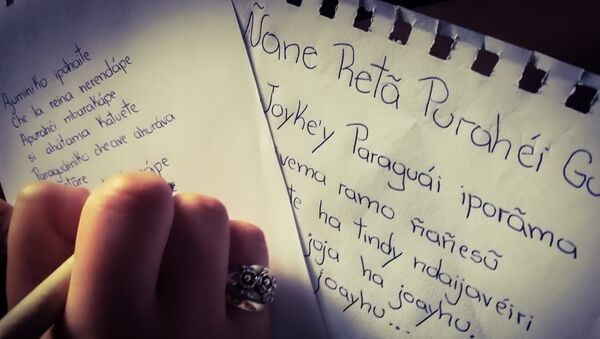 Ayuminiko ipohaite
Che la reina nerendápe
Apurahéi mbarakápe
si ahátama katuete
Paraguáiniko che ave ahuráva
Ñane Retã Purahéi Gu
Joyke'y Paraguái iporãma
vema ramo ñañesũ
te ha tindy ndaijavéiri
joja ha joayhu.
joayhu...